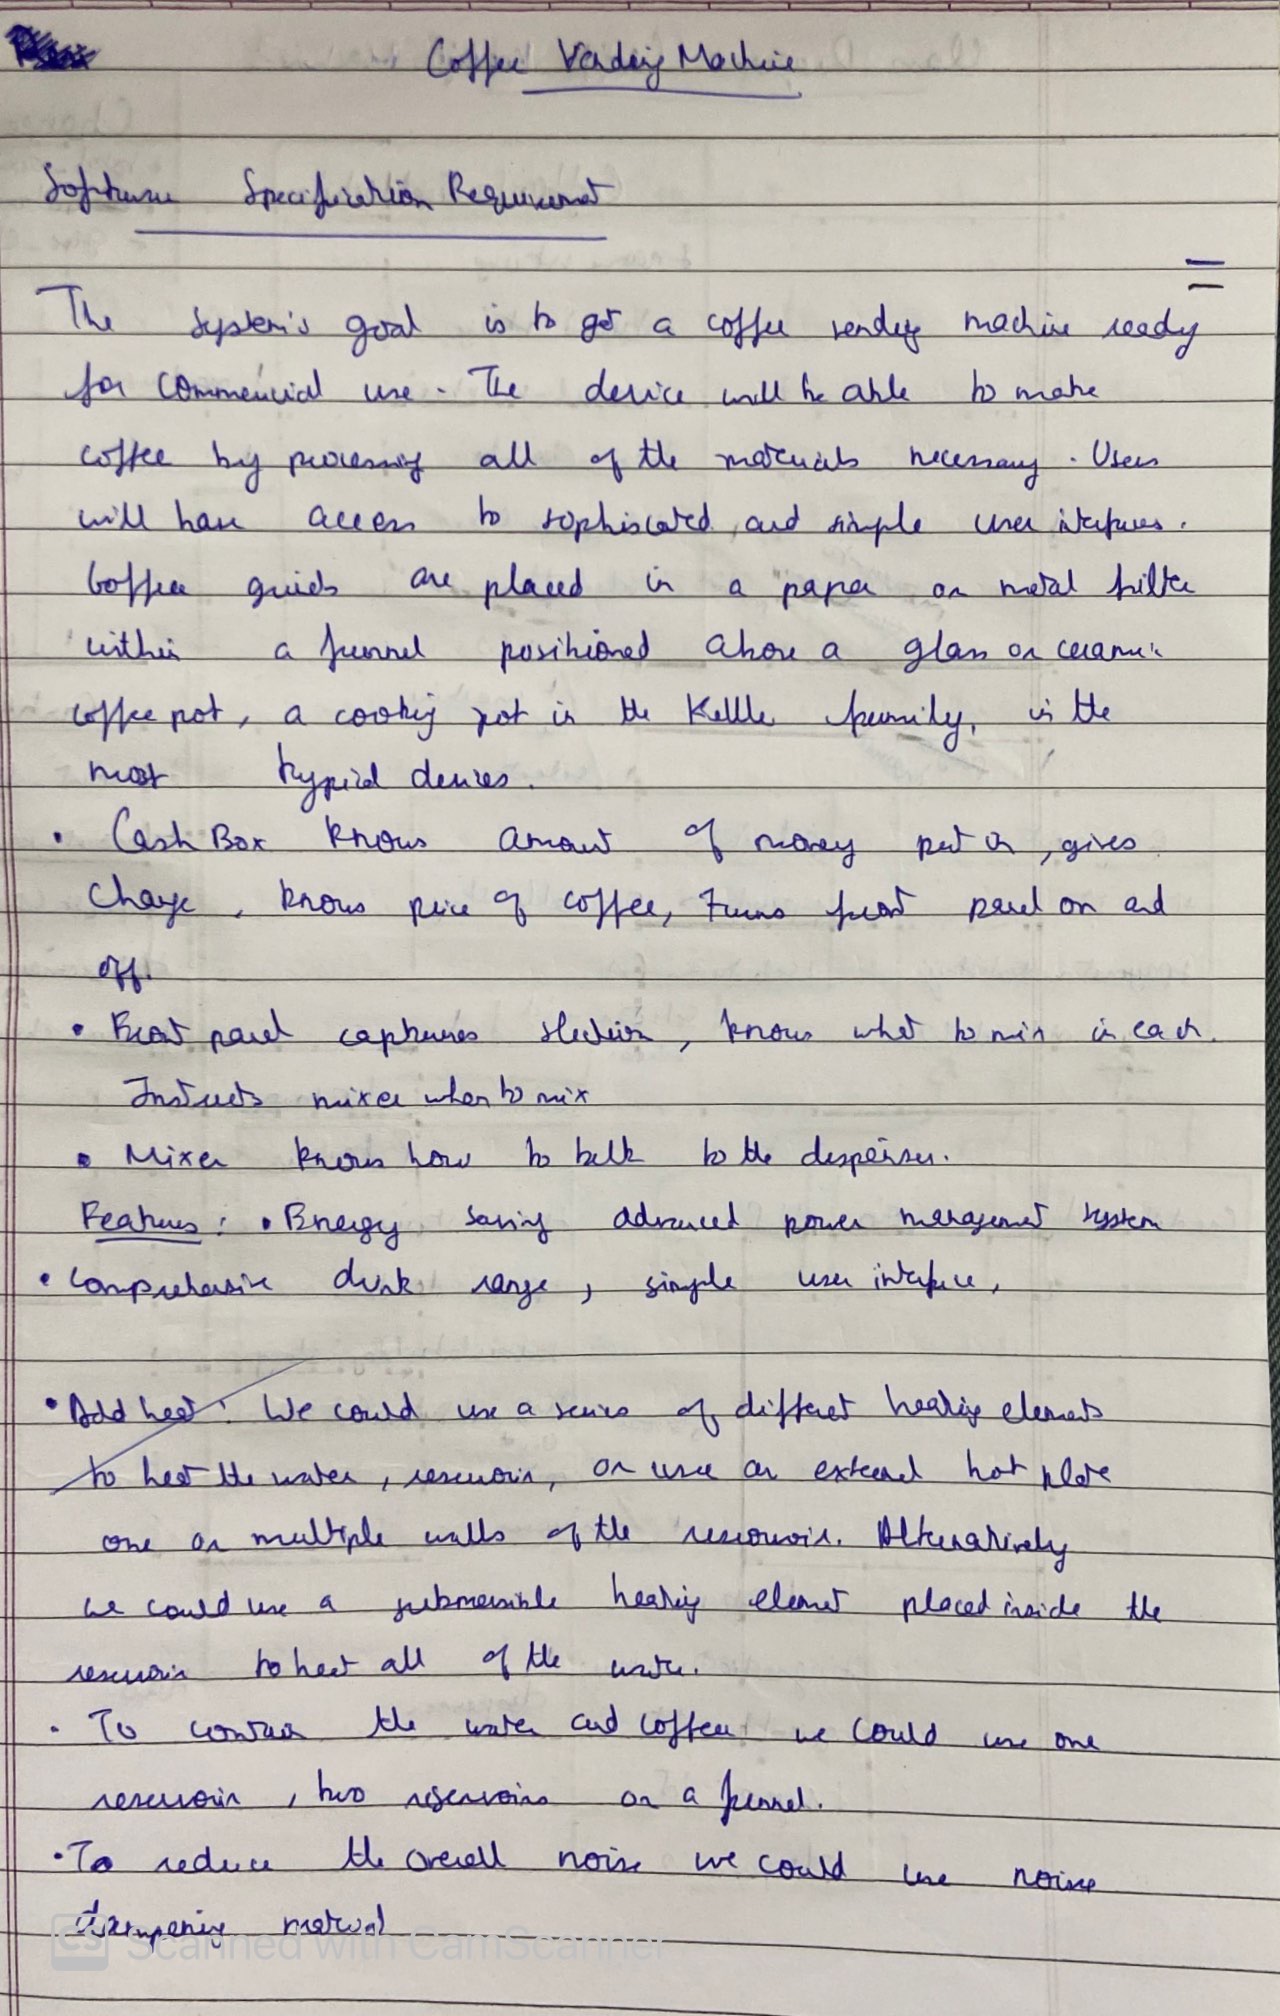 Coffee Vending Machine
Software Specification Requirement
The system's goal is to get a coffee vending machine ready
for commercial use. The device will be able to make
coffee by processing all of the materials necessary. Users
will have access to sophiscated and simple user interfaces.
Coffee grinds are placed in a paper or metal filter
within a funnel positioned above a glass or ceramic
coffee pot, a cooking pot in the Kettle family, is the
most typical devices.
• Cash Box knows amount of money put in, gives
change, knows price of coffee, Turns front panel on and
off.
• Front panel captures selection, knows what to mix in each.
Instructs mixer when to mix
• Mixer knows how to talk to the dispenser.
Features : • Energy saving advanced power management system
• Comprehensive drink range, simple user interface,
• Add heat : We could use a series of different heating elements
to heat the water, reservoir, or use an external hot plate
one or multiple walls of the reservoir. Alternatively
we could use a submersible heating element placed inside the
reservoir to heat all of the water.
• To contain the water and coffee we could use one
reservoir, two reservoirs or a funnel.
• To reduce the overall noise we could use noise
dampening material
CS Scanned with CamScanner